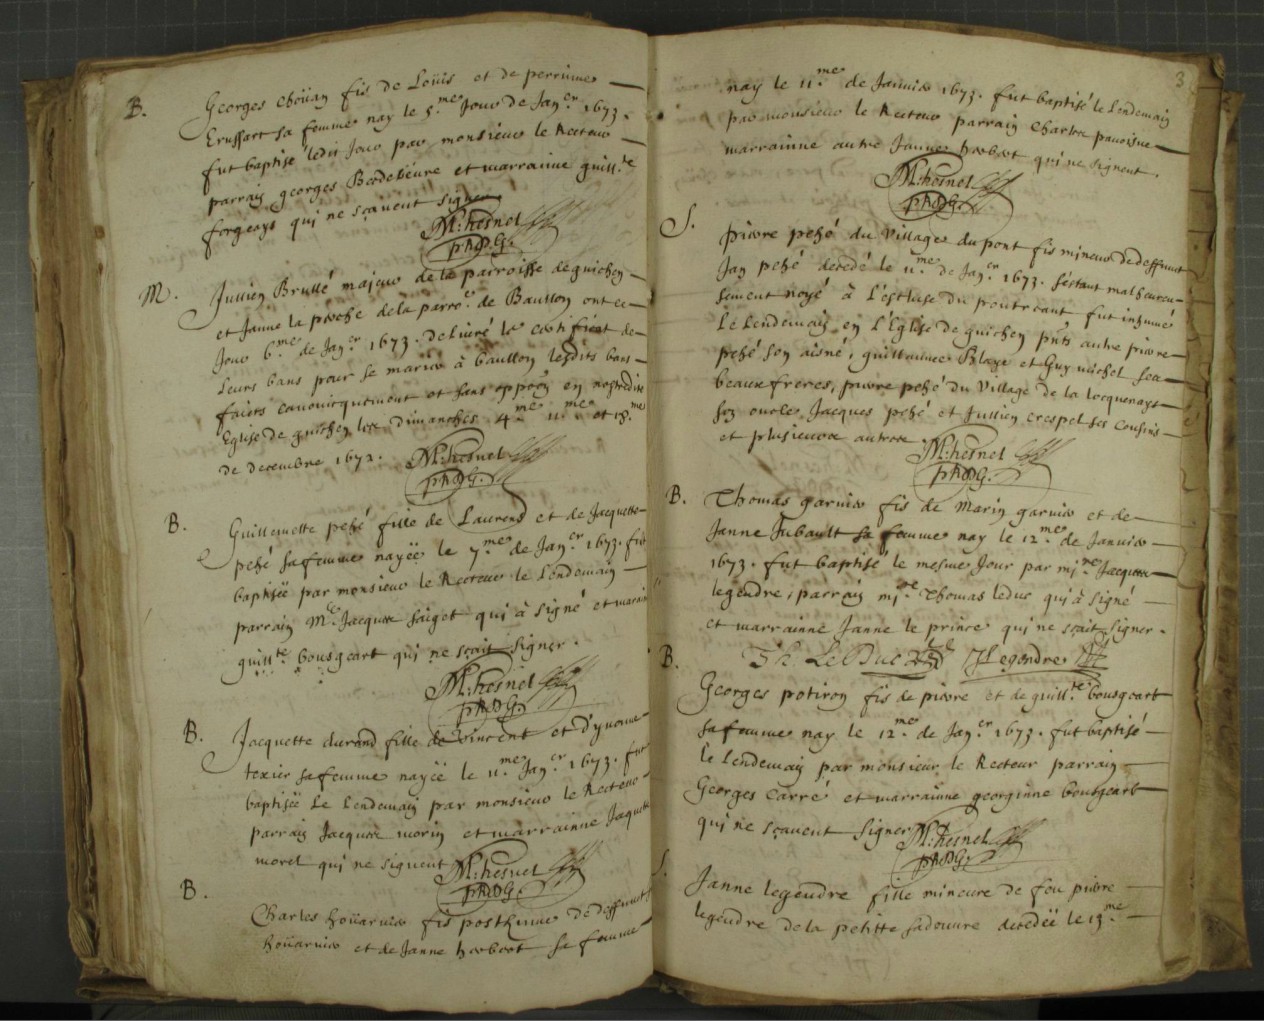 B. Georges choüan fis de Loüis et de perrinne
Erussart sa femme nay le 5.me Jour de Jan.er 1673.
fut baptisé ledit Jour par monsieur le Recteur
parrain georges Bordebeure et marrainne guill.te
forgeays qui ne sçavent signer
M: hesnel
p. R. D. G.
M. Jullien Brullé majeur de la parroisse de guichen
et Janne la porche de la parr.e de Baullon ont ce
Jour 6.me de Jan.er 1673. delivré le certificat de
Leurs bans pour se marier à baullon lesdits bans
faicts canonicquement et sans oppo͠on en nostredite
Eglise de guichen les dimanches 4.me 11.me et 18.me
de decembre 1672.
M: hesnel
p. R. D. G.
B. Guillemette pehé fille de Laurens et de Jacquette
pehé sa femme nayëe le 7.me de Jan.er 1673. fut
baptisëe par monsieur le Recteur le Lendemain
parrain M.e Jacques saiget qui à signé et marain
guill.te bousgeart qui ne sçait signer.
M: hesnel
p. R. D. G.
B. Jacquette durand fille de vincent et d'yvonne
texier sa femme nayëe le 11.me Jan.er 1673. fut
baptisëe Le Lendemain par monsieur le Recteur
parrain Jacques morin et marrainne Jaquette
morel qui ne signent
M: hesnel
p. R. D. G.
B. Charles hoüarnin fis posthume de deffunct
hoüarnin et de Janne herbert sa femme
3
nay le 11.me de Janvier 1673. fut baptisé le Lendemain
par monsieur le Recteur parrain Charles
marrainne autre Janne herbert qui ne signent.
M: hesnel
p. R. D. G.
S. pierre pehé du village du pont fis mineur de deffunct
Jan pehé decedé le 11.me de Jan.er 1673. s'estant malheureu-
sement noyé à L'escluse du pontreant fut inhumé
Le Lendemain en L'Eglise de guichen pñts autre pierre
pehé son aisné, guillaume Blaye et Guy michel ses
beaux freres, pierre pehé du village de la
son oncle Jacques pehé et Jullien crespel ses cousins
et plusieurs autres
M: hesnel
p. R. D. G.
B. Thomas garnier fis de Marin garnier et de
Janne Jubault sa femme nay le 12.me de Janvier
1673. fut baptisé le mesme Jour par mi.re Jacques
legendre, parrain mi.re Thomas leduc qui à signé
et marrainne Janne le prince qui ne sçait signer.
Th. Le Duc J Legendre
B. Georges potiron fis de pierre et de guill.te bousgeart
sa femme nay le 12.me de Jan.er 1673. fut baptisé
le Lendemain par monsieur le Recteur parrain
Georges Carré et marrainne georginne bousgeart
qui ne sçavent signer
M: hesnel
p. R. D. G.
S. Janne legendre fille mineure de feu pierre
legendre de la petitte sadouure decedëe le 13.me